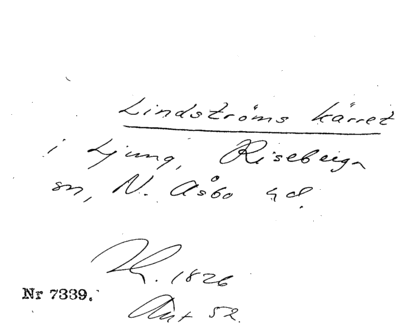 Lindströms kärret
i Ljung, Riseberga
sn, N. Åsbo hd.
Th. 1826
Nr 7339.
Ant 52.